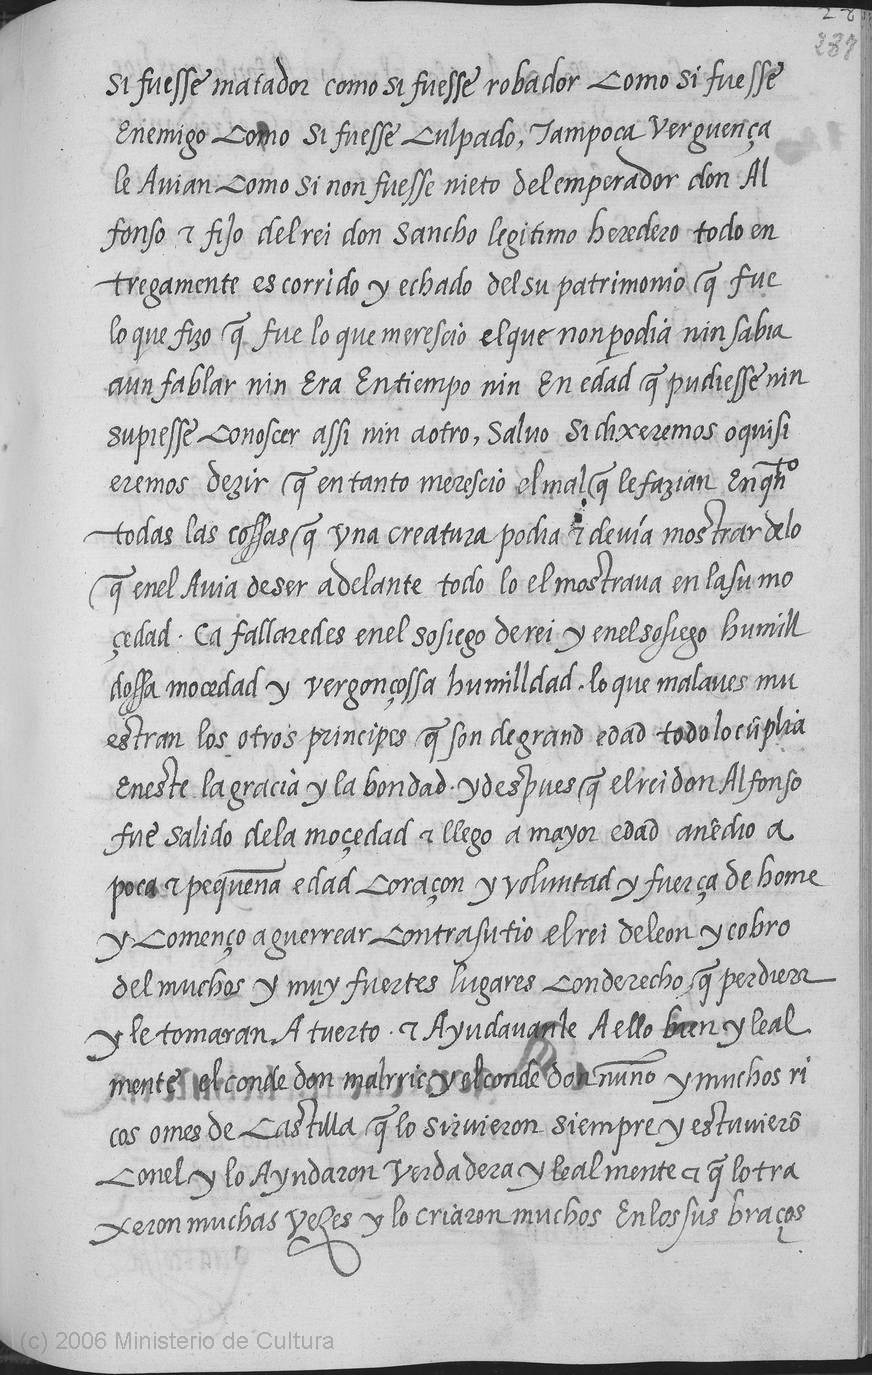 28
287
si fuesse matador como si fuesse robador Como si fuesse
Enemigo Como si fuesse Culpado, Tampoca Verguença
le Avian Como si non fuesse nieto del emperador don Al
fonso τ fijo del rei don Sancho legitimo heredero todo en
tregamente es corrido y echado del su patrimonio q̃ fue
lo que fizo q̃ fue lo que merescio el que non podia nin sabia
aun fablar nin Era En tiempo nin En edad q̃ pudiesse nin
supiesse Conoscer assi nin a otro, Salvo si dixeremos o quisi
eremos dezir q̃ en tanto merescio el mal q̃ le fazian En qñto
todas las cossas q̃ vna creatura podia τ devía mostrar de lo
q̃ en el Avia de ser adelante todo lo el mostraua en la su mo
çedad. Ca fallaredes en el sosiego de rei y en el sosiego humill
dossa mocedad y vergonçossa humilldad. lo que malaues mu
estran los otros principes q̃ son de grand edad todo lo cũplia
En este la gracia y la bondad. y despues q̃ el rei don Alfonso
fue salido de la moçedad τ llego a mayor edad añedio a
poca τ pequeña edad Coraçon y voluntad y fuerça de home
y Començo a guerrear Contra su tio el rei de leon y cobro
del muchos y muy fuertes lugares Con derecho q̃ perdiera
y le tomaran A tuerto. τ Ayudavanle A ello bien y leal
mente el conde don malrric y el conde don nuño y muchos ri
cos omes de Castilla q̃ lo sirvieron siempre y estuvierõ
Con el y lo Ayudaron Verdadera y lealmente τ q̃ lo tra
xeron muchas vezes y lo criaron muchos En los sus braços
(c) 2006 Ministerio de Cultura